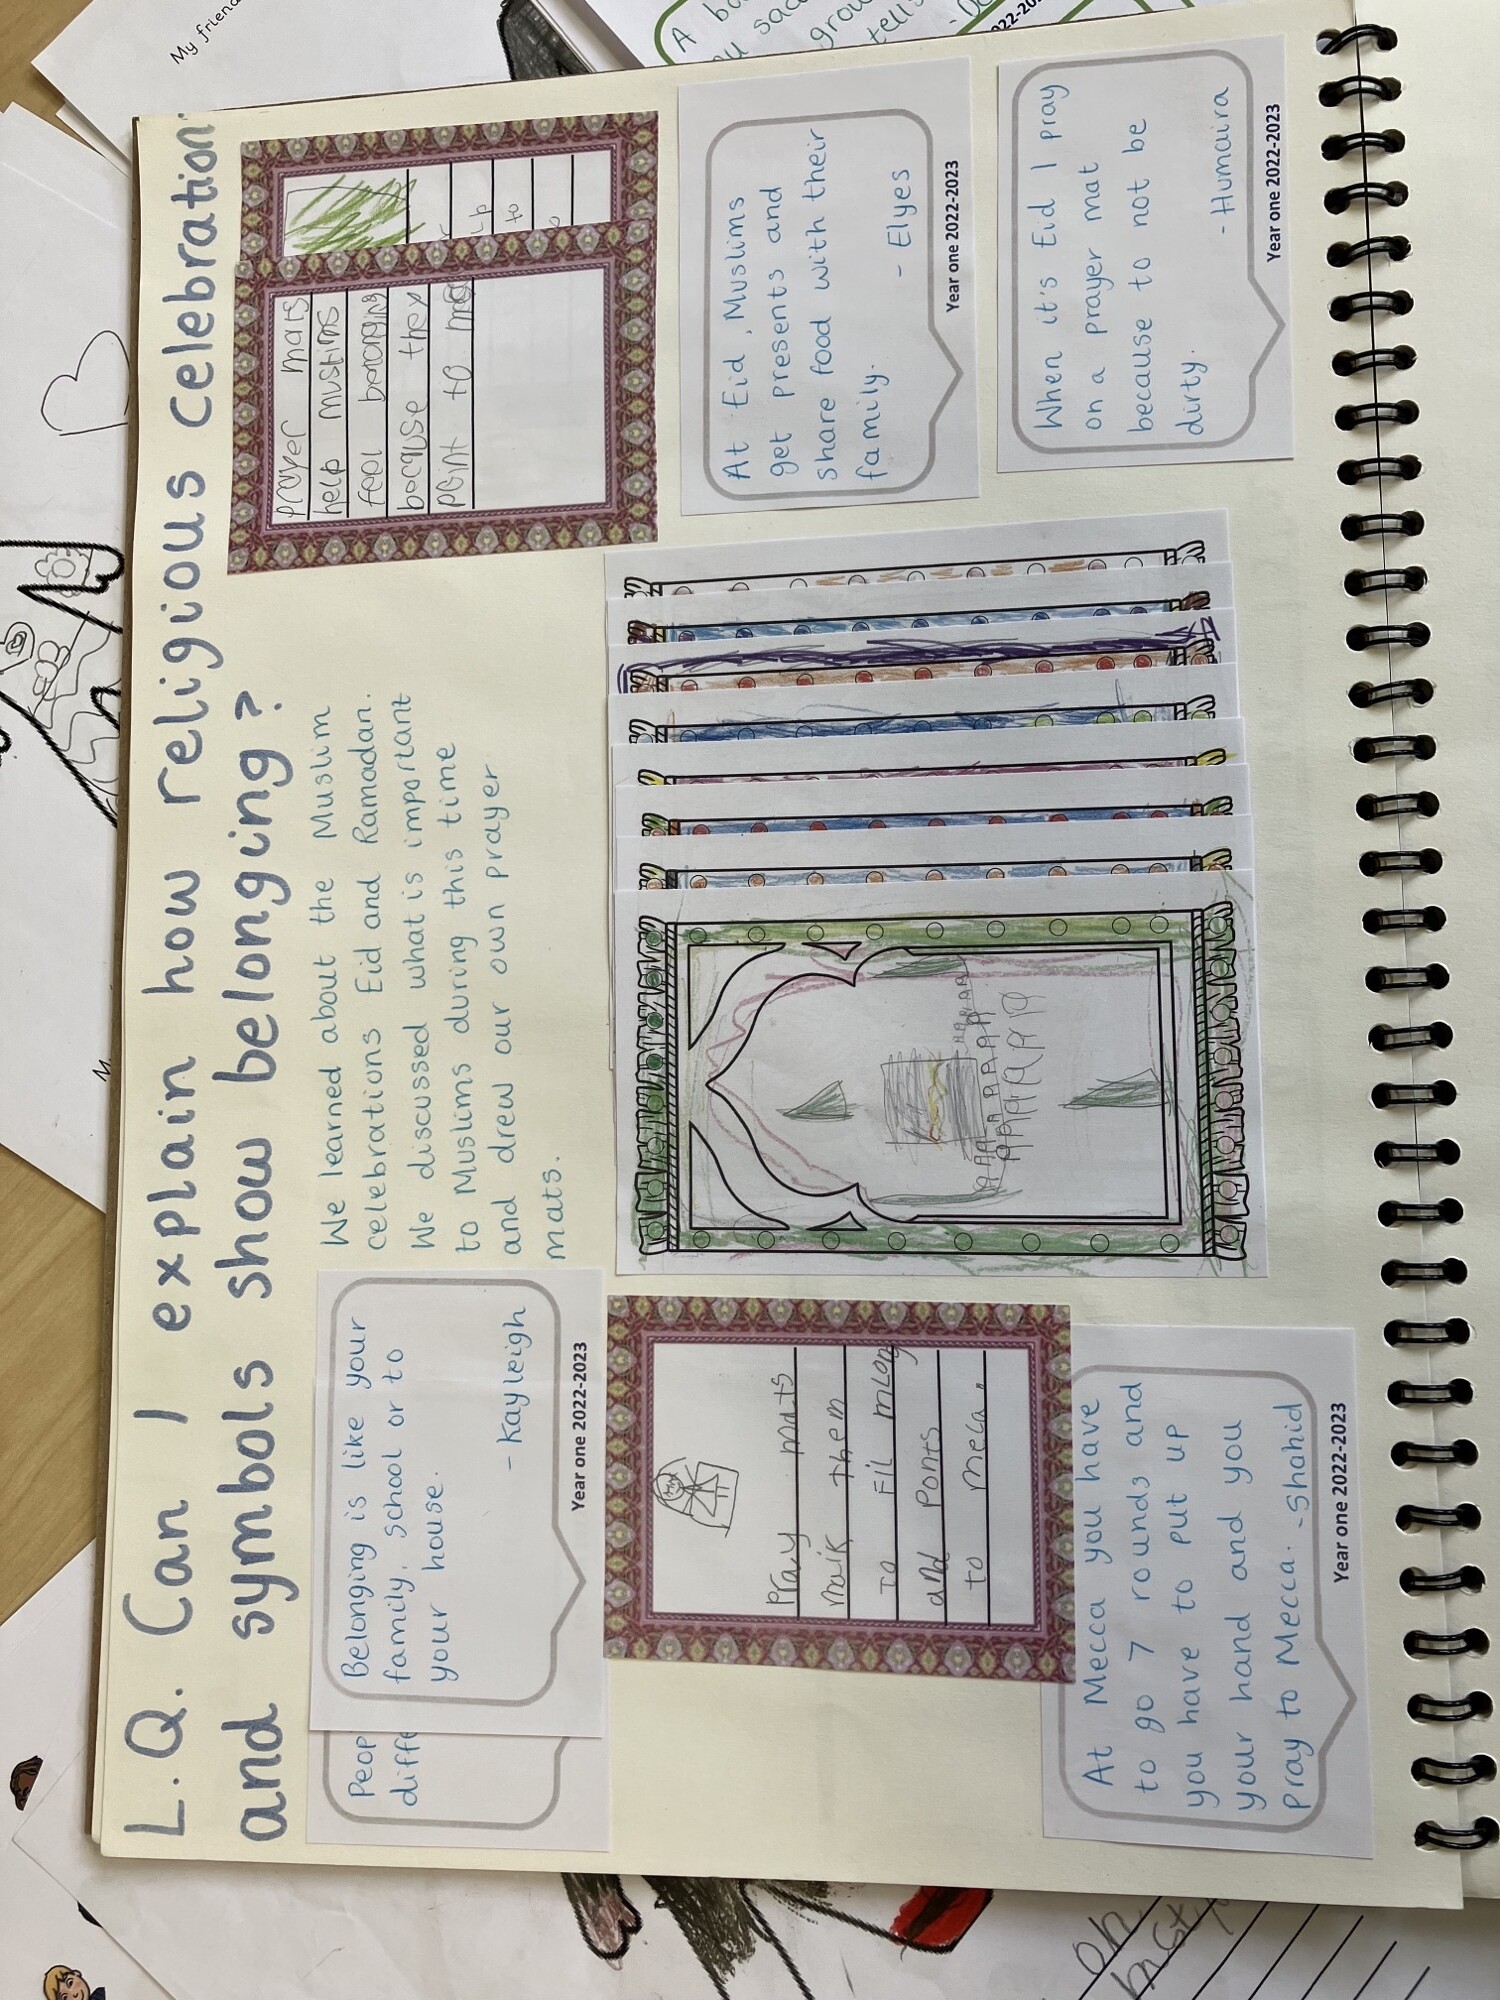 L.Q. Can I explain how religious celebration
and symbols show belonging?
Belonging is like your
family, school or to
your house.
- Kayleigh
Year one 2022-2023
Peop
diffe
We learned about the Muslim
celebrations Eid and Ramadan.
We discussed what is important
to Muslims during this time
and drew our own prayer
mats.
prayer mats
help muslims
feel
because they
to
to
Pray mats
maik them
to Fil
and Ponts
to meca.
At Mecca you have
to go 7 rounds and
you have to put up
your hand and you
pray to Mecca. - Shahid
Year one 2022-2023
At Eid, Muslims
get presents and
share food with their
family.
- Elyes
Year one 2022-2023
When it's Eid I pray
on a prayer mat
because to not be
dirty.
- Humaira
Year one 2022-2023
My friend
A
grow
tells
M.
on